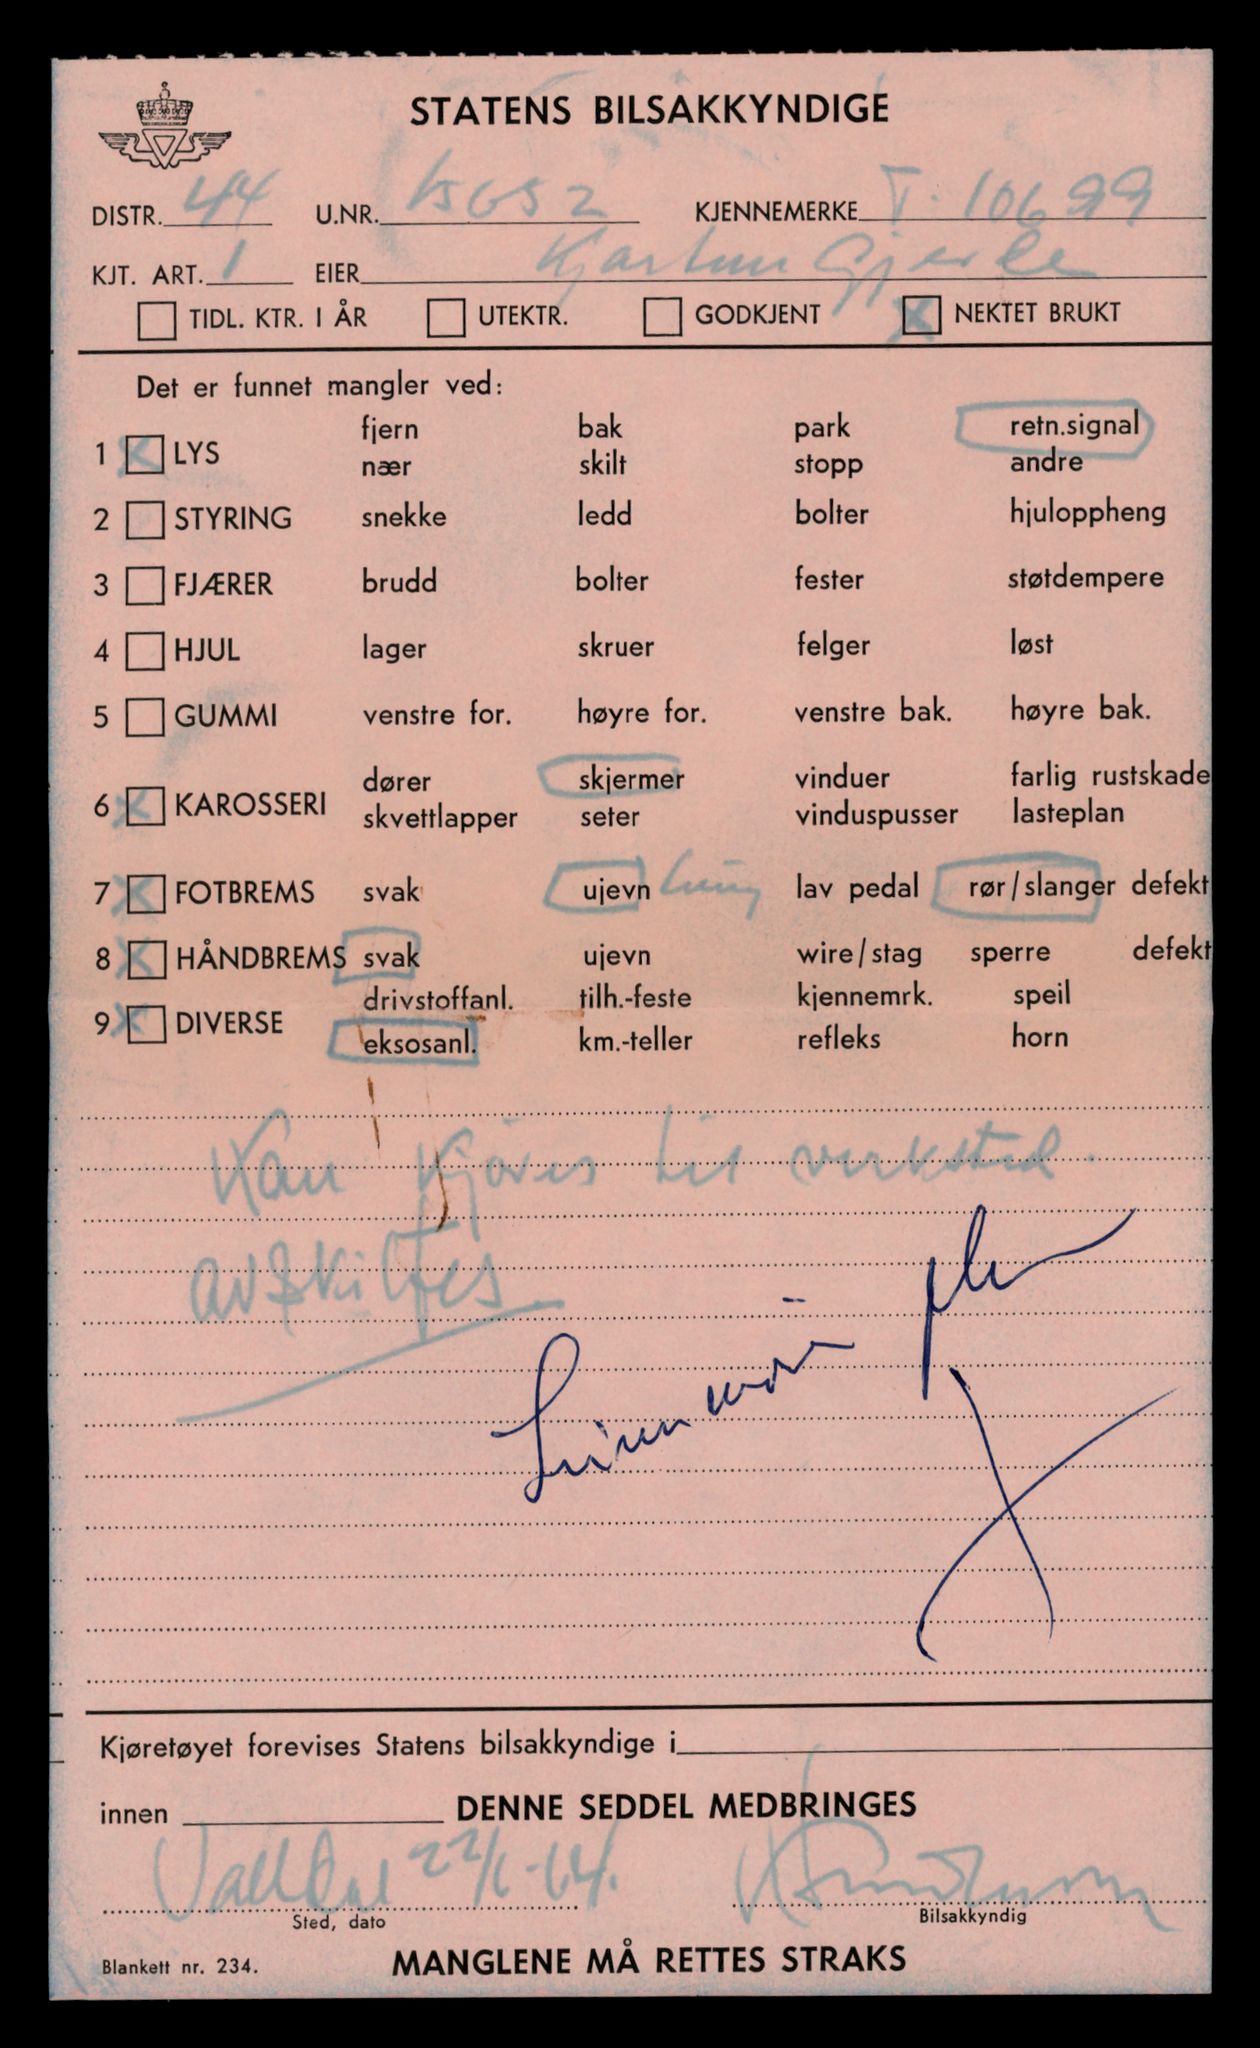 STATENS BILSAKKYNDIGE
DISTR. 44 U.NR. KJENNEMERKE T-10699
KJT. ART. 1 EIER Kjartan Gjerde
TIDL. KTR. I ÅR UTEKTR. GODKJENT X NEKTET BRUKT
Det er funnet mangler ved:
fjern bak park retn.signal
1 X LYS
nær skilt stopp andre
2 STYRING snekke ledd bolter hjuloppheng
3 FJÆRER brudd bolter fester støtdempere
4 HJUL lager skruer felger løst
5 GUMMI venstre for. høyre for. venstre bak. høyre bak.
dører skjermer vinduer farlig rustskade
6 X KAROSSERI
skvettlapper seter vinduspusser lasteplan
7 X FOTBREMS svak ujevn lav pedal rør/slanger defekt
8 X HÅNDBREMS svak ujevn wire/stag sperre defekt
drivstoffanl. tilh.-feste kjennemrk. speil
9 X DIVERSE
eksosanl. km.-teller refleks horn
Kan kjøres til verksted.
avskiltes
Kjøretøyet forevises Statens bilsakkyndige i
innen DENNE SEDDEL MEDBRINGES
Valldal 22/1-64.
Sted, dato Bilsakkyndig
Blankett nr. 234. MANGLENE MÅ RETTES STRAKS